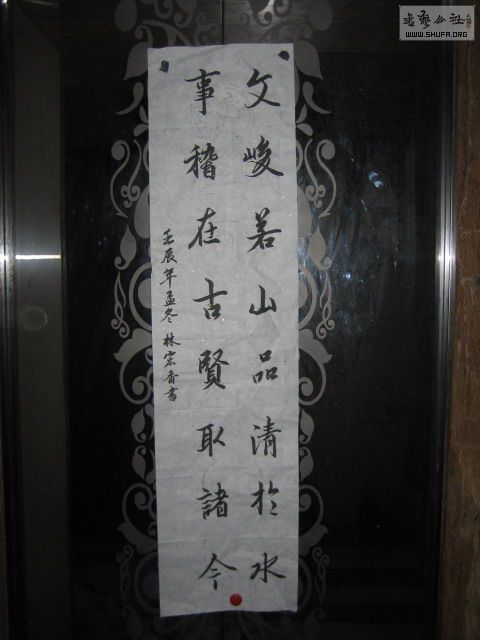 文峻若山品清於水
事稽在古賢取諸今
壬辰年孟冬林宏香書
书艺公社
WWW.SHUFA.ORG